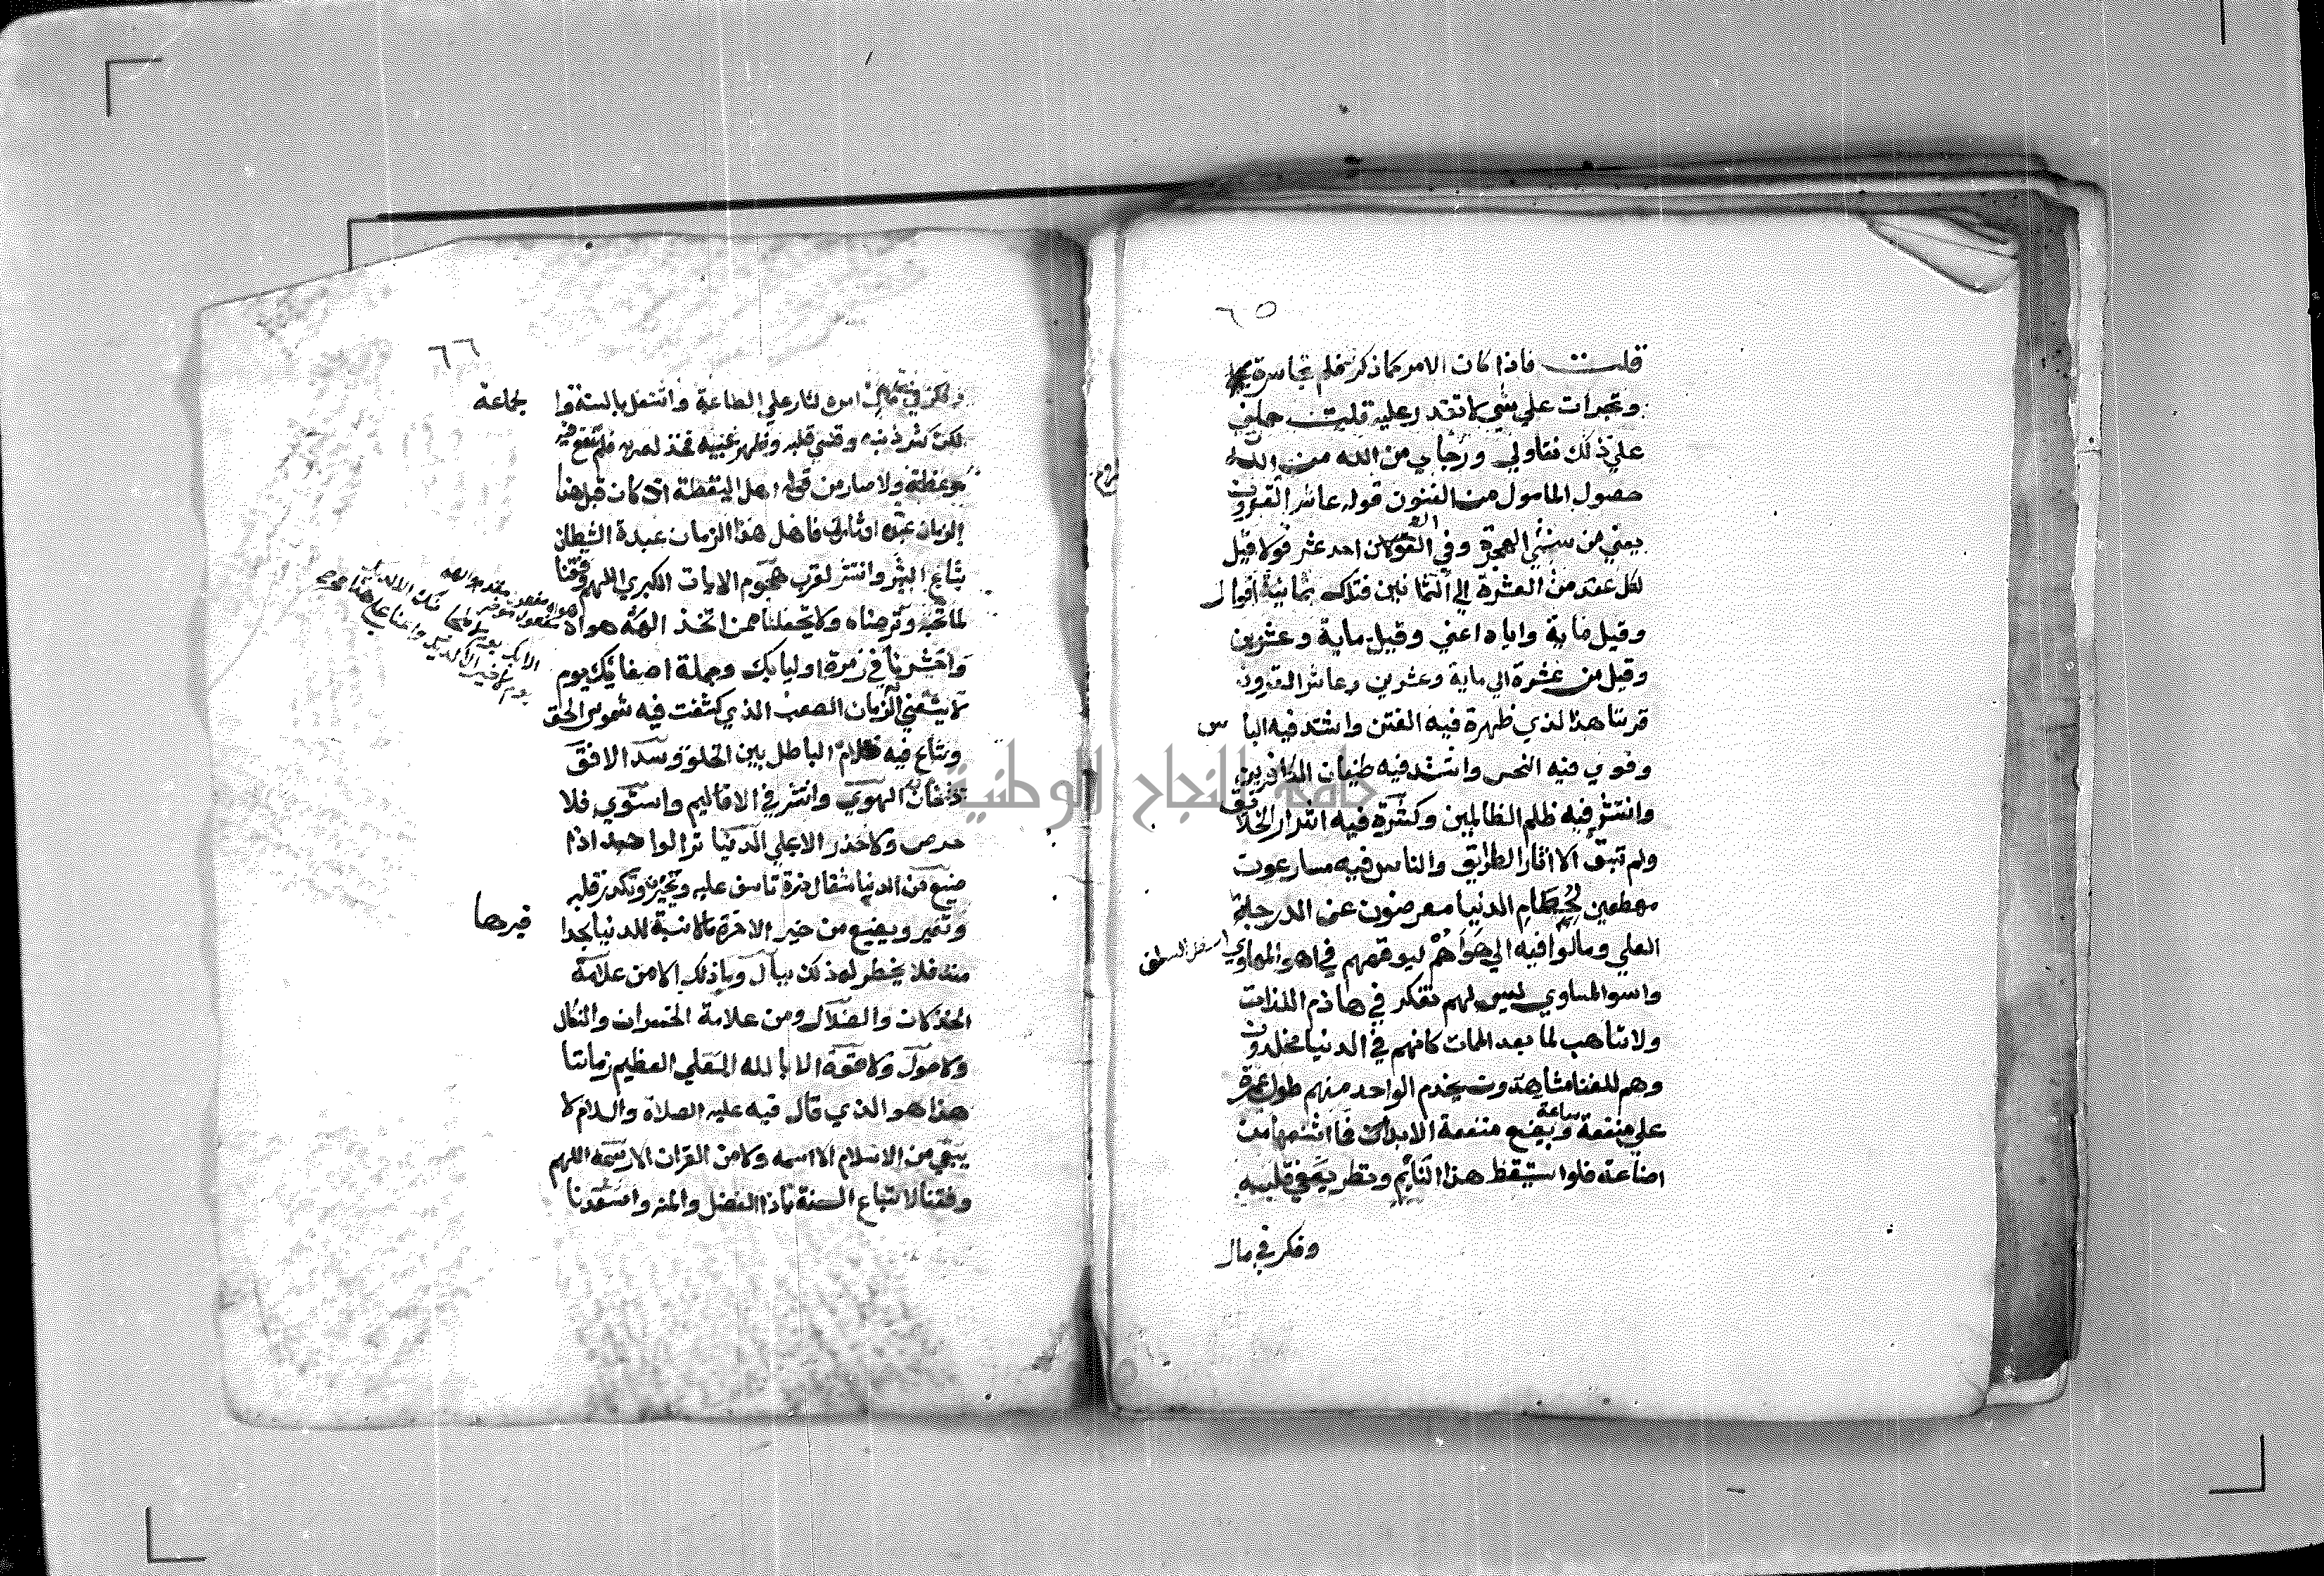 ٦٥
قلت فاذا كان الامر كما ذكرت فلم تجاسرة
وتجرات علي شي لا تقدر عليه قلت حملني
علي ذلك تفاولي ورجاي من الله من الله
حصول المامول من الفنون قوله عاشر القرون
يعني من سني الهجرة وفي القولان احد عشر قولا قيل
لكل عقد من العشرة الي الثمانين فتلك بثمانية اقوال
وقيل ماية واياه اعني وقيل ماية وعشرين
وقيل من عشرة الي ماية وعشرين وعاشر القرون
قرننا هذا لذي ظهرة فيه الفتن واشتد فيه الباس
وقوي فيه النحس واشتد فيه طغيان الكافرين
وانتشر فيه ظلم الظالمين وكثرة فيه اشرار الخلايق
ولم تبق الا اثار الطرايق والناس فيه مسارعوت
مهطعين لحطام الدنيا معرضون عن الدرجة
العلي ومالوا فيه الي هواهم ليوقعهم في اهو المهاوي اسفل السطق
واسو المساوي ليس لهم تفكر في هاذم اللذات
ولا تاهب لما بعد الممات كانهم في الدنيا مخلدون
وهم للفنا مشاهدون يخدم الواحد منهم طول عمرة
علي منفعة ساعة ويضيع منفعة الابدان فما اشنعها من
اضاعة فلو استيقظ هذا النايم ونظر في قلبه
وفكر في مال
٦٦
وفكر في مال امره لثار علي الطاعة واشتغل بالسنة وا لجماعة
لكن كثر ذنبه وقسي قلبه وظهر فلم تنفع فيه
موعظة ولا صار من قوله اهل اليقظة اذ كان قبل هذا
الزمان عبدة اوثان فاهل هذا الزمان عبدة الشيطان
شاع الشر وانتشر لقرب هجوم الايات الكبري اللهم وفقنا
لما تحبه وترضاه ولا تجعلنا ممن اتخذ الهه هواه
واحشرنا في زمرة اوليايك وجملة اصفيايك يوم
الزمان الصعب الذي كشفت فيه شموس الحق
وشاع فيه ظلام الباطل بين الخلق وسد الافق
دخان الهوي وانتشر في الاقاليم واستوي فلا
حرص ولا حذر الا علي الدنيا تر الواحد اذا
ضيع من الدنيا مثقال ذرة تاسف عليه وتحير وتكدر قلبه
وتغير ويضيع من خير الاخرة مالا نسبة للدنيا بجذا فيرها
منه فلا يخطر له ذلك ببال وما ذلك الا من علامة
الخذلان والضلال ومن علامة الخسران والنكال
ولا حول ولا قوة الا بالله العلي العظيم زماننا
هذا هو الذي قال فيه عليه الصلاة والسلام لا
يبقي من الاسلام الا اسمه ولا من القران الا رسمه اللهم
وفقنا لاتباع السنة ياذا الفضل والمنه واسعدنا
جامعة النجاح الوطنية